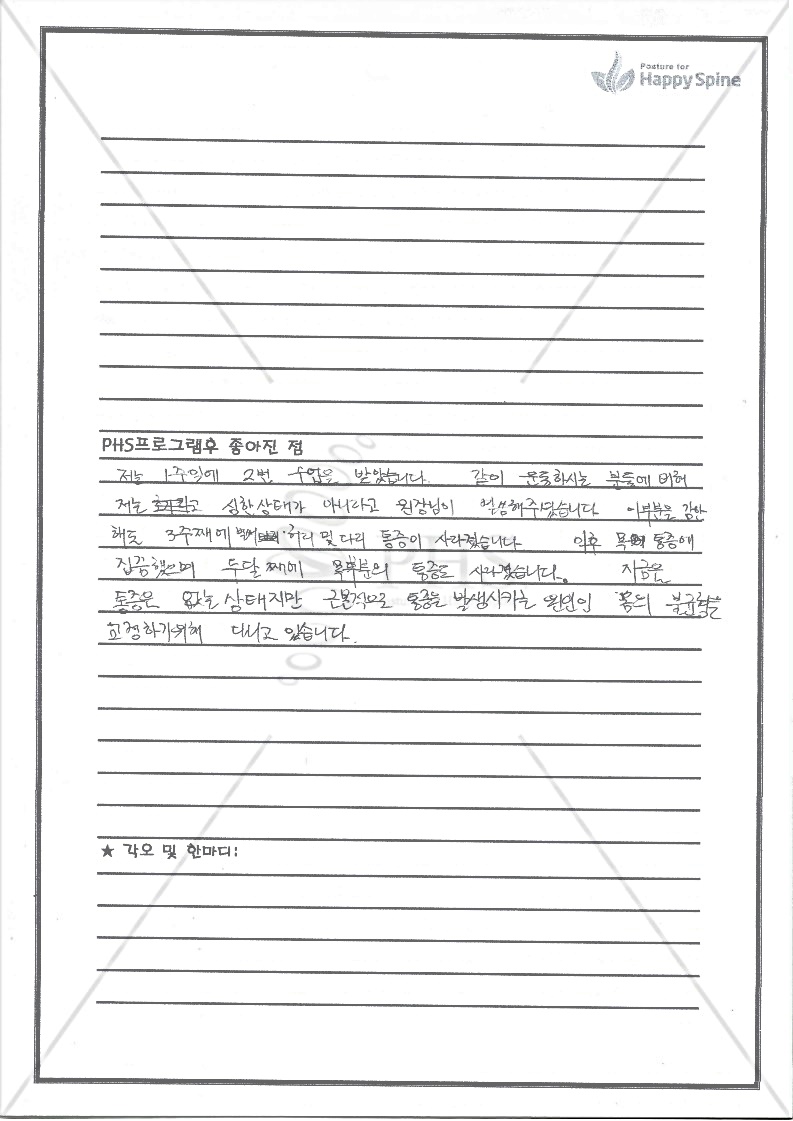 Posture for
Happy Spine
PHS프로그램후 좋아진 점
저는 1주일에 2번 수업을 받았습니다. 같이 운동하시는 분들에 비해
저는 심한상태가 아니라고 원장님이 말씀해주셨습니다 이부분을 감안
해도 3주째에 허리 및 다리 통증이 사라졌습니다 이후 목의 통증에
집중했으며 두달 째에 목부분의 통증도 사라졌습니다. 지금은
통증은 없는 상태지만 근본적으로 통증을 발생시키는 원인인 몸의 불균형을
교정하기위해 다니고 있습니다.
★ 각오 및 한마디: